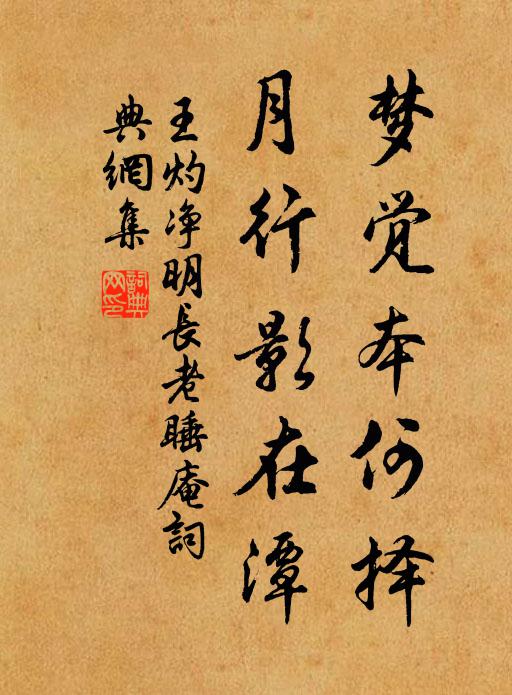 梦觉本何择
月行影在潭
王灼净明長老睡庵詞
典網集
詞典网印